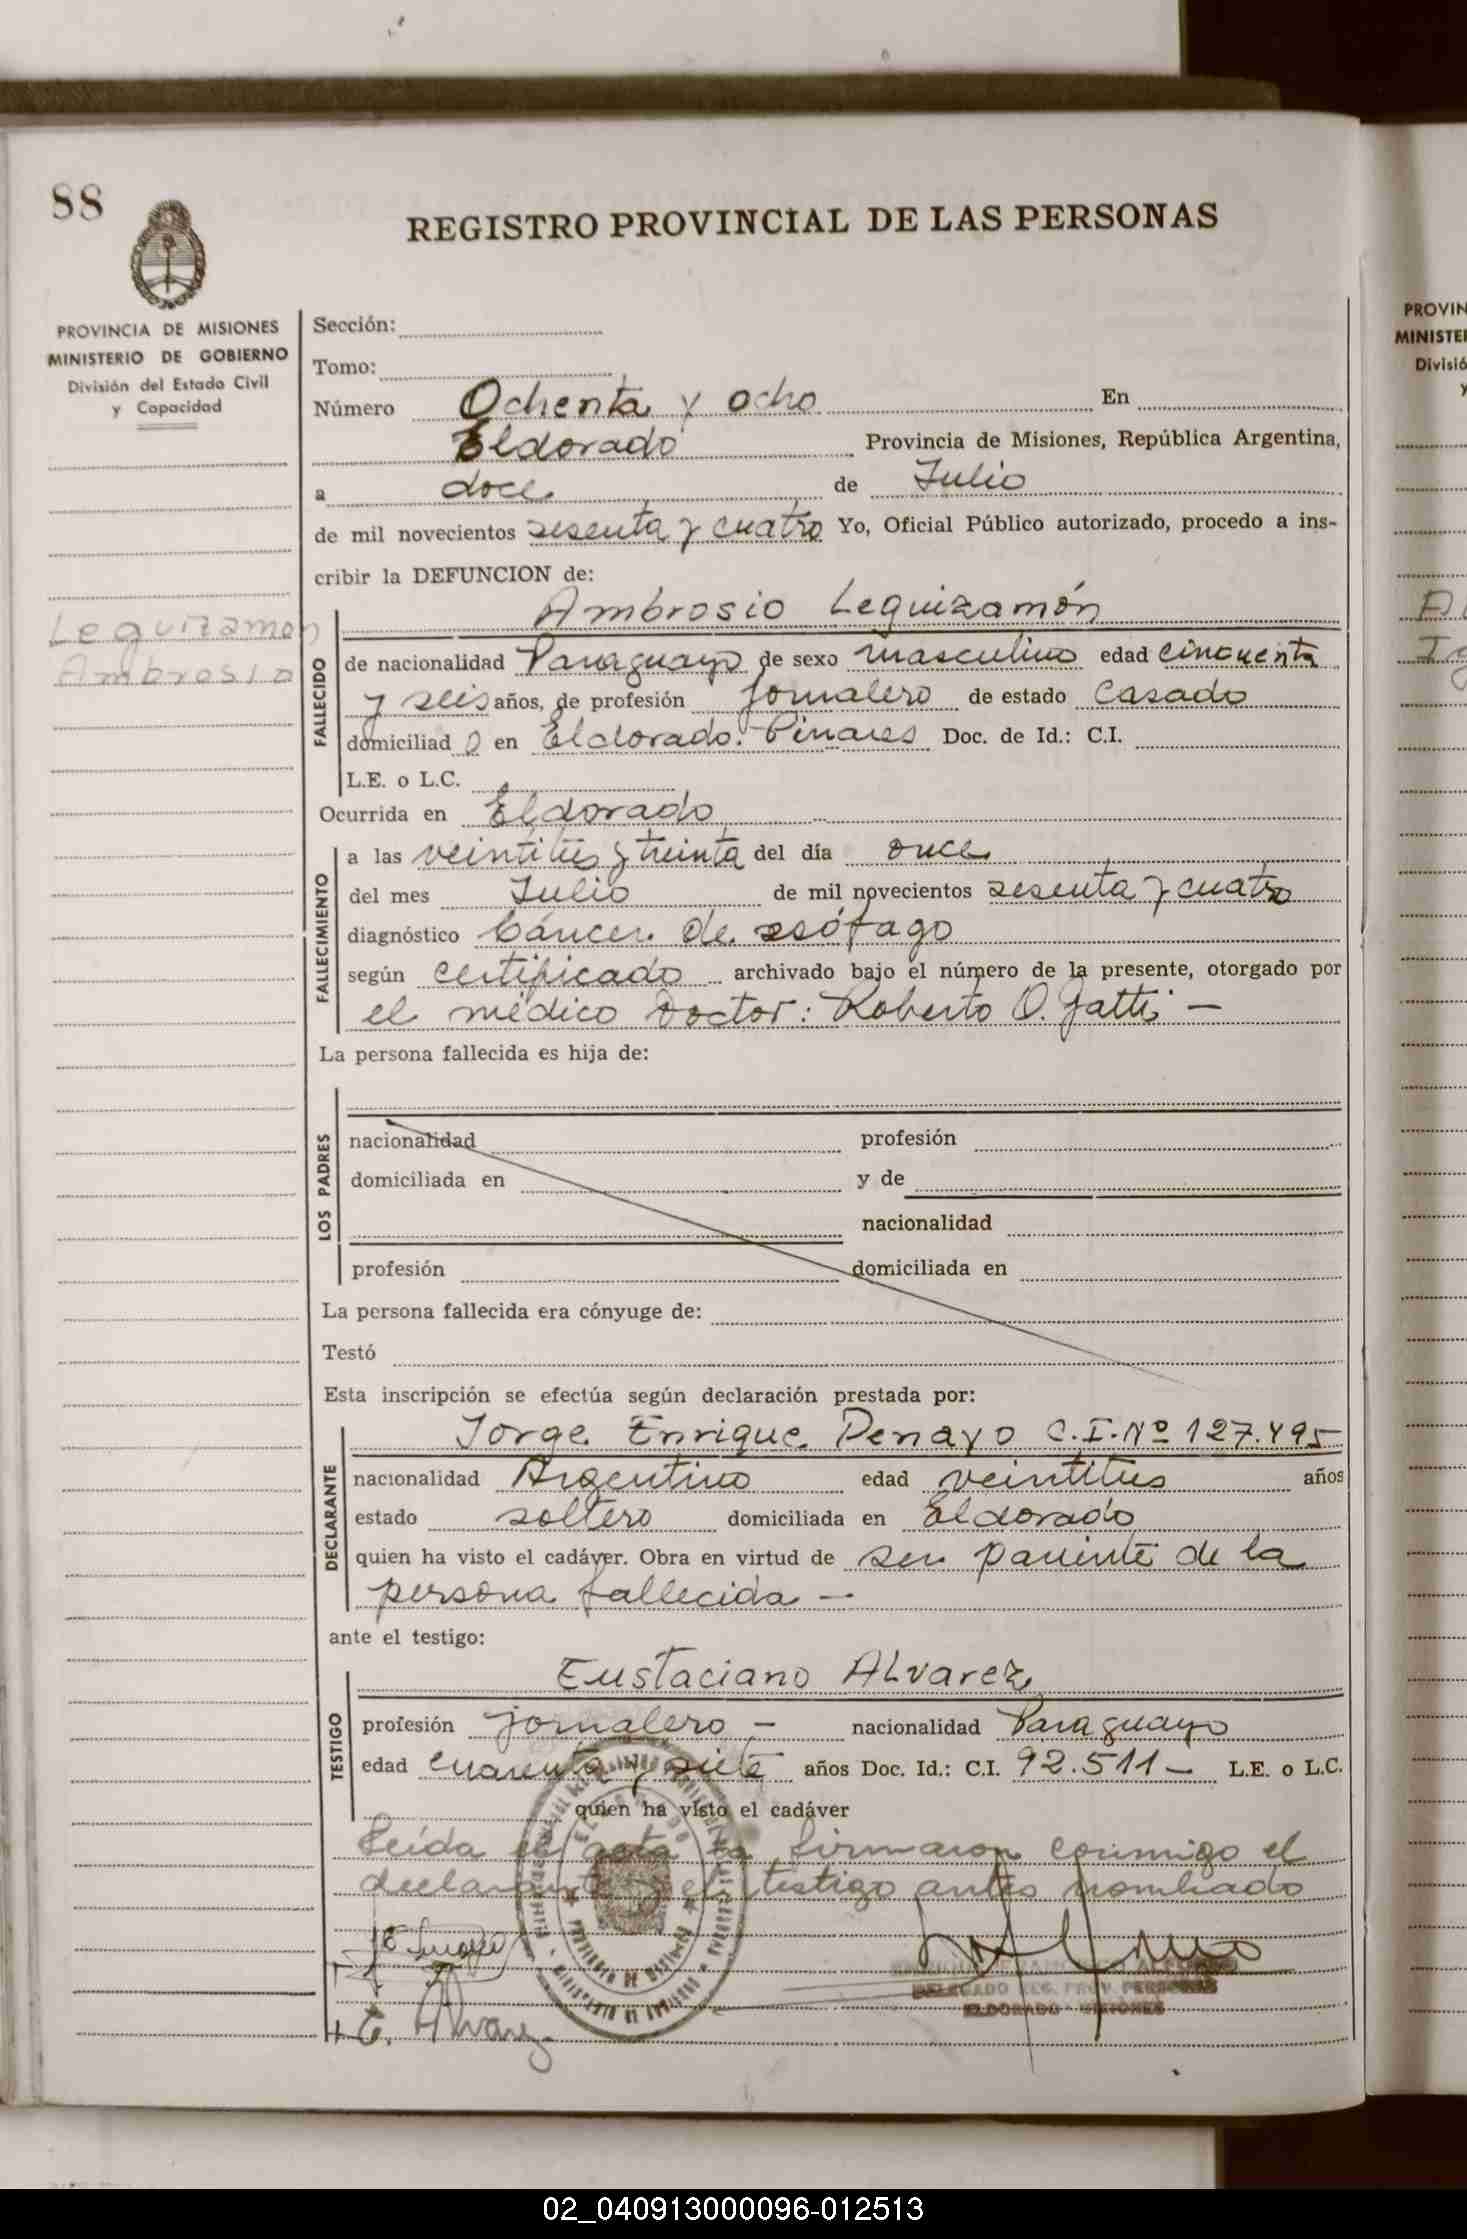 88
REGISTRO PROVINCIAL DE LAS PERSONAS
PROVINCIA DE MISIONES
MINISTERIO DE GOBIERNO
División del Estado Civil
y Capacidad
Leguizamon
Ambrosio
Sección:
Tomo:
Número Ochenta y ocho En
Eldorado Provincia de Misiones, República Argentina,
a doce de Julio
de mil novecientos sesenta y cuatro Yo, Oficial Público autorizado, procedo a ins-
cribir la DEFUNCION de:
FALLECIDO
Ambrosio Leguizamón
de nacionalidad Paraguayo de sexo masculino edad cincuenta
y seis años, de profesión jornalero de estado Casado
domiciliado en Eldorado. Pinares Doc. de Id.: C.I.
L.E. o L.C.
Ocurrida en Eldorado
FALLECIMIENTO
a las veintitrés y treinta del día once
del mes Julio de mil novecientos sesenta y cuatro
diagnóstico Cáncer de esófago
según certificado archivado bajo el número de la presente, otorgado por
el médico Doctor: Roberto O. Gatti —
La persona fallecida es hija de:
LOS PADRES
nacionalidad profesión
domiciliada en y de
nacionalidad
profesión domiciliada en
La persona fallecida era cónyuge de:
Testó
Esta inscripción se efectúa según declaración prestada por:
DECLARANTE
Jorge Enrique Penayo C.I. Nº 127.495
nacionalidad Argentino edad veintitrés años
estado soltero domiciliada en Eldorado
quien ha visto el cadáver. Obra en virtud de ser pariente de la
persona fallecida —
ante el testigo:
TESTIGO
Eustaciano Alvarez
profesión jornalero — nacionalidad Paraguayo
edad cuarenta y siete años Doc. Id.: C.I. 92.511 — L.E. o L.C.
quien ha visto el cadáver
Leída el acta la firmaron conmigo el
declarante y el testigo antes nombrado
DELEGADO REG. PROV. PERSONAS
ELDORADO - MISIONES
E. Alvarez
PROVINCIA DE MISIONES
PROVIN
MINISTER
Divisió
y
02_040913000096-012513